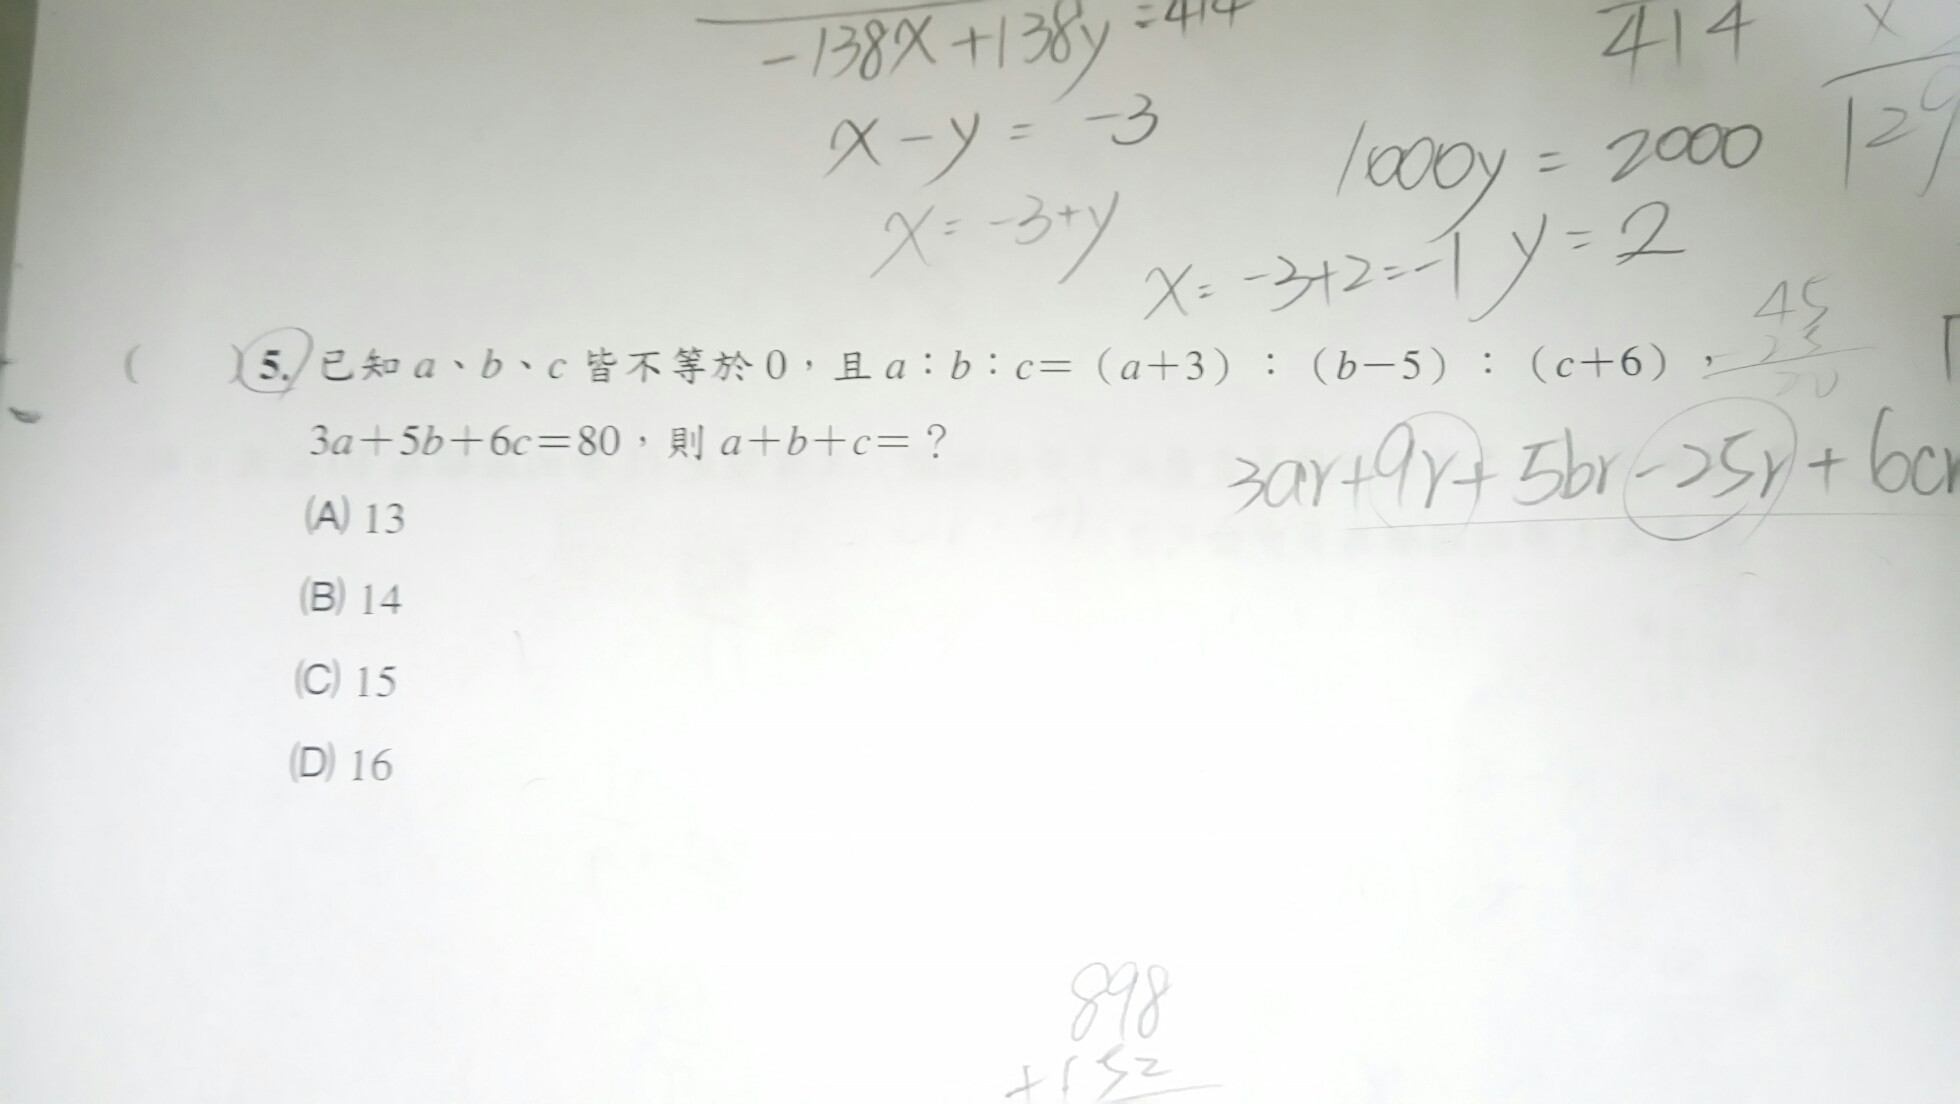 -138x+138y=414
414
x
x-y=-3
1000y=2000
129
x=-3+y
x=-3+2=-1
y=2
45
( )5.已知a、b、c皆不等於0,且a:b:c=(a+3):(b-5):(c+6),
3a+5b+6c=80,則a+b+c=?
3ar+9r+5br-25r+6cr
(A) 13
(B) 14
(C) 15
(D) 16
898
+152